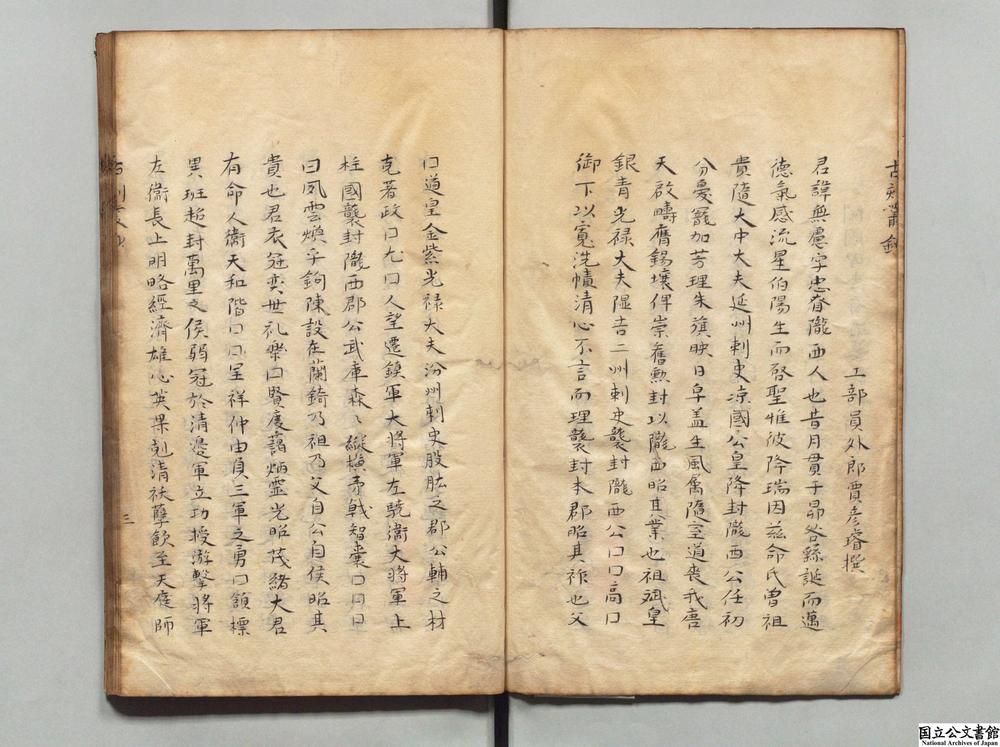 工部員外郎賈彦璿撰
君諱無慮字忠眷隴西人也昔月貫于昴咎繇誕而邁
德氣感流星伯陽生而啓聖惟彼降瑞因玆命氏曽祖
貴隨大中大夫延州刺史凉國公皇降封隴西公任初
分憂寵加芳理朱旟映日皁盖生風属隨室道喪我唐
天啟疇庸錫壤俾崇舊勲封以隴西昭其業也祖斌皇
銀青光禄大夫隰吉二州刺史襲封隴西公口口高口
御下以寬洗幘清心不言而理襲封本郡昭其祚也父
口道皇金紫光禄大夫汾州刺史股肱之郡公輔之材
克著政口九口人望遷鎮軍大将軍左驍衛大将軍上
柱國襲封隴西郡公武庫森〻縱横矛戟智囊口口日
曰夙雲煥乎鉤陳設在蘭錡乃祖乃父自公自侯昭其
貴也君衣冠奕世礼樂口賢慶藹炳霊光昭茂緒大君
有命人衛天和階口口呈祥仲由負三軍之勇口頷標
異班超封萬里之侯弱冠於清邊軍立功授游擊将軍
左衞長上明略經濟雄心英果剋清祅孽飲至天庭師
三
国立公文書館
National Archives of Japan